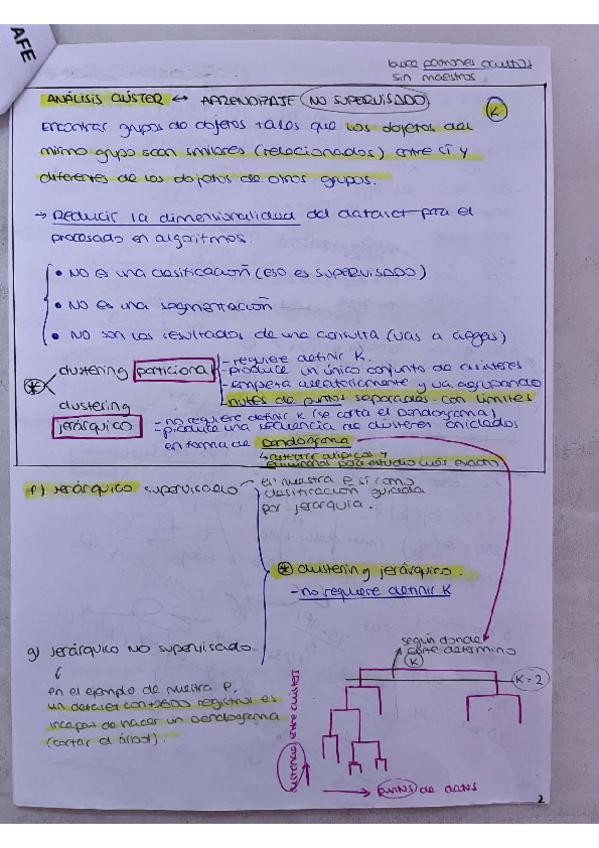 AFE
busca patrones ocultos
sin maestros
ANÁLISIS CLÚSTER ↔ APRENDIZAJE NO SUPERVISADO
K
Encontrar grupos de objetos tales que los objetos del
mismo grupo sean similares (relacionados) entre sí y
diferentes de los objetos de otros grupos.
→ Reducir la dimensionalidad del dataset para el
procesado en algoritmos.
• NO es una clasificación (eso es SUPERVISADO)
• NO es una segmentación
• NO son los resultados de una consulta (vas a ciegas)
clustering particiona
- requiere definir K.
- produce un único conjunto de clústeres
- empieza aleatoriamente y va agrupando
nubes de puntos separadas con límites
clustering
jerárquico
- no requiere definir K (se corta el dendograma)
- produce una secuencia de clústeres anidados
en forma de dendograma
↳ detectar atípicos y
eliminarlos para estudio más exacto
f) jerárquico supervisado
- en nuestra P sí como
clasificación guiada
por jerarquía.
* clustering jerárquico.
- no requiere definir K
g) jerárquico NO supervisado
en el ejemplo de nuestra P.
un dataset con +2600 registros es
incapaz de hacer un dendograma
(cortar el árbol).
según donde
corte determino
K
K = 2
distancia entre clústers
puntos de datos
2